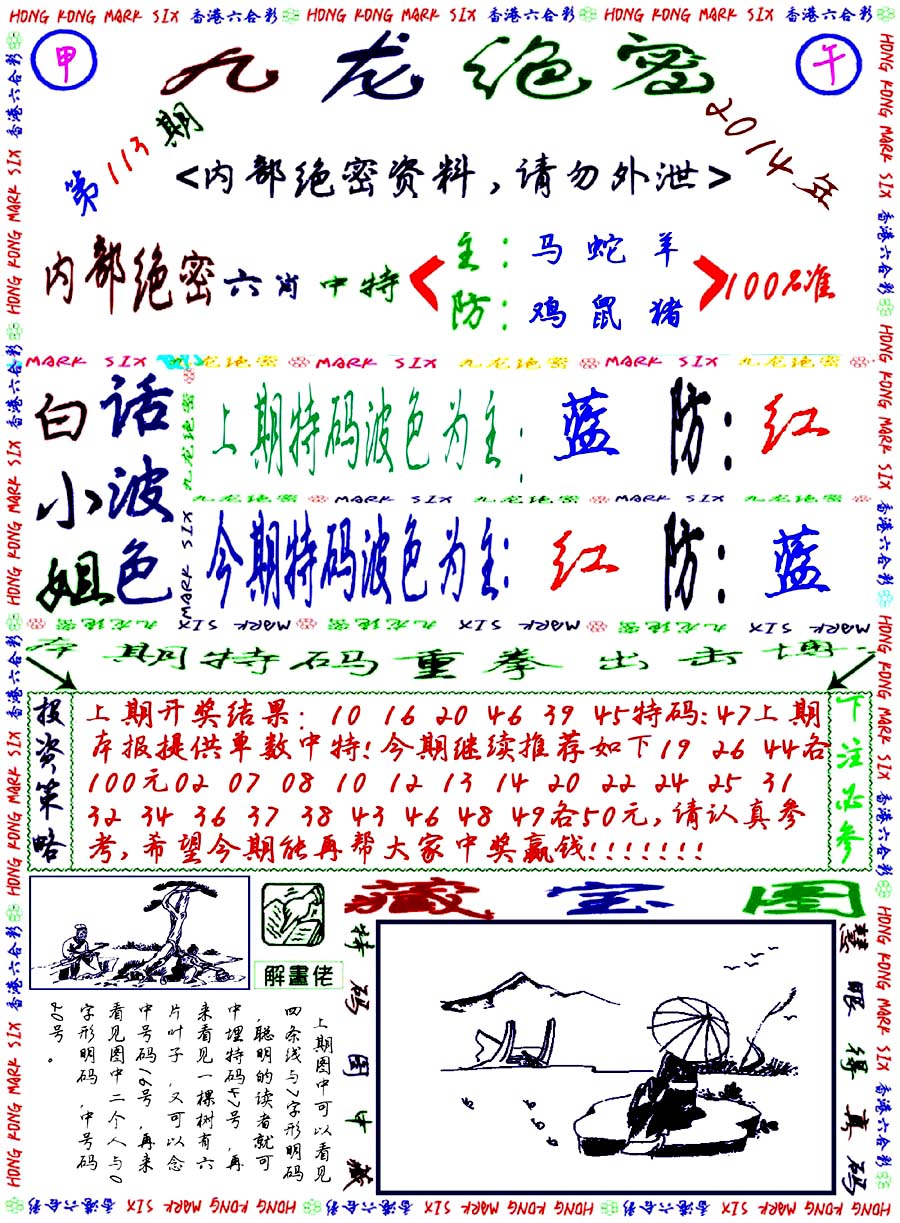 HONG KONG MARK SIX 香港六合彩 HONG KONG MARK SIX 香港六合彩 HONG KONG MARK SIX 香港六合彩
甲
九龙绝密
午
第113期
2014年
<内部绝密资料,请勿外泄>
内部绝密六肖中特
主:马 蛇 羊
防:鸡 鼠 猪
100%准
MARK SIX 九龙绝密 MARK SIX 九龙绝密 MARK SIX 九龙绝密
白话
小波
姐色
上期特码波色为主:蓝 防:红
九龙绝密 MARK SIX 九龙绝密 MARK SIX 九龙绝密
今期特码波色为主:红 防:蓝
九龙绝密 MARK SIX
九龙绝密 MARK SIX 九龙绝密 MARK SIX 九龙绝密 MARK SIX
本期特码重拳出击
投资策略
上期开奖结果: 10 16 20 46 39 45特码:47上期
本报提供单数中特!今期继续推荐如下19 26 44各
100元02 07 08 10 12 13 14 20 22 24 25 31
32 34 36 37 38 43 46 48 49各50元,请认真参
考,希望今期能再帮大家中奖赢钱!!!!!!!
下注必参
解畫佬
上期图中可以看见
四条线与7字形明码
,聪明的读者就可
中埋特码47号,再
来看见一棵树有六
片叶子,又可以念
中号码16号,再来
看见图中二个人与0
字形明码,中号码
20号。
藏宝图
特码图中藏
慧眼得真码
HONG KONG MARK SIX 香港六合彩 HONG KONG MARK SIX 香港六合彩 HONG KONG MARK SIX 香港六合彩